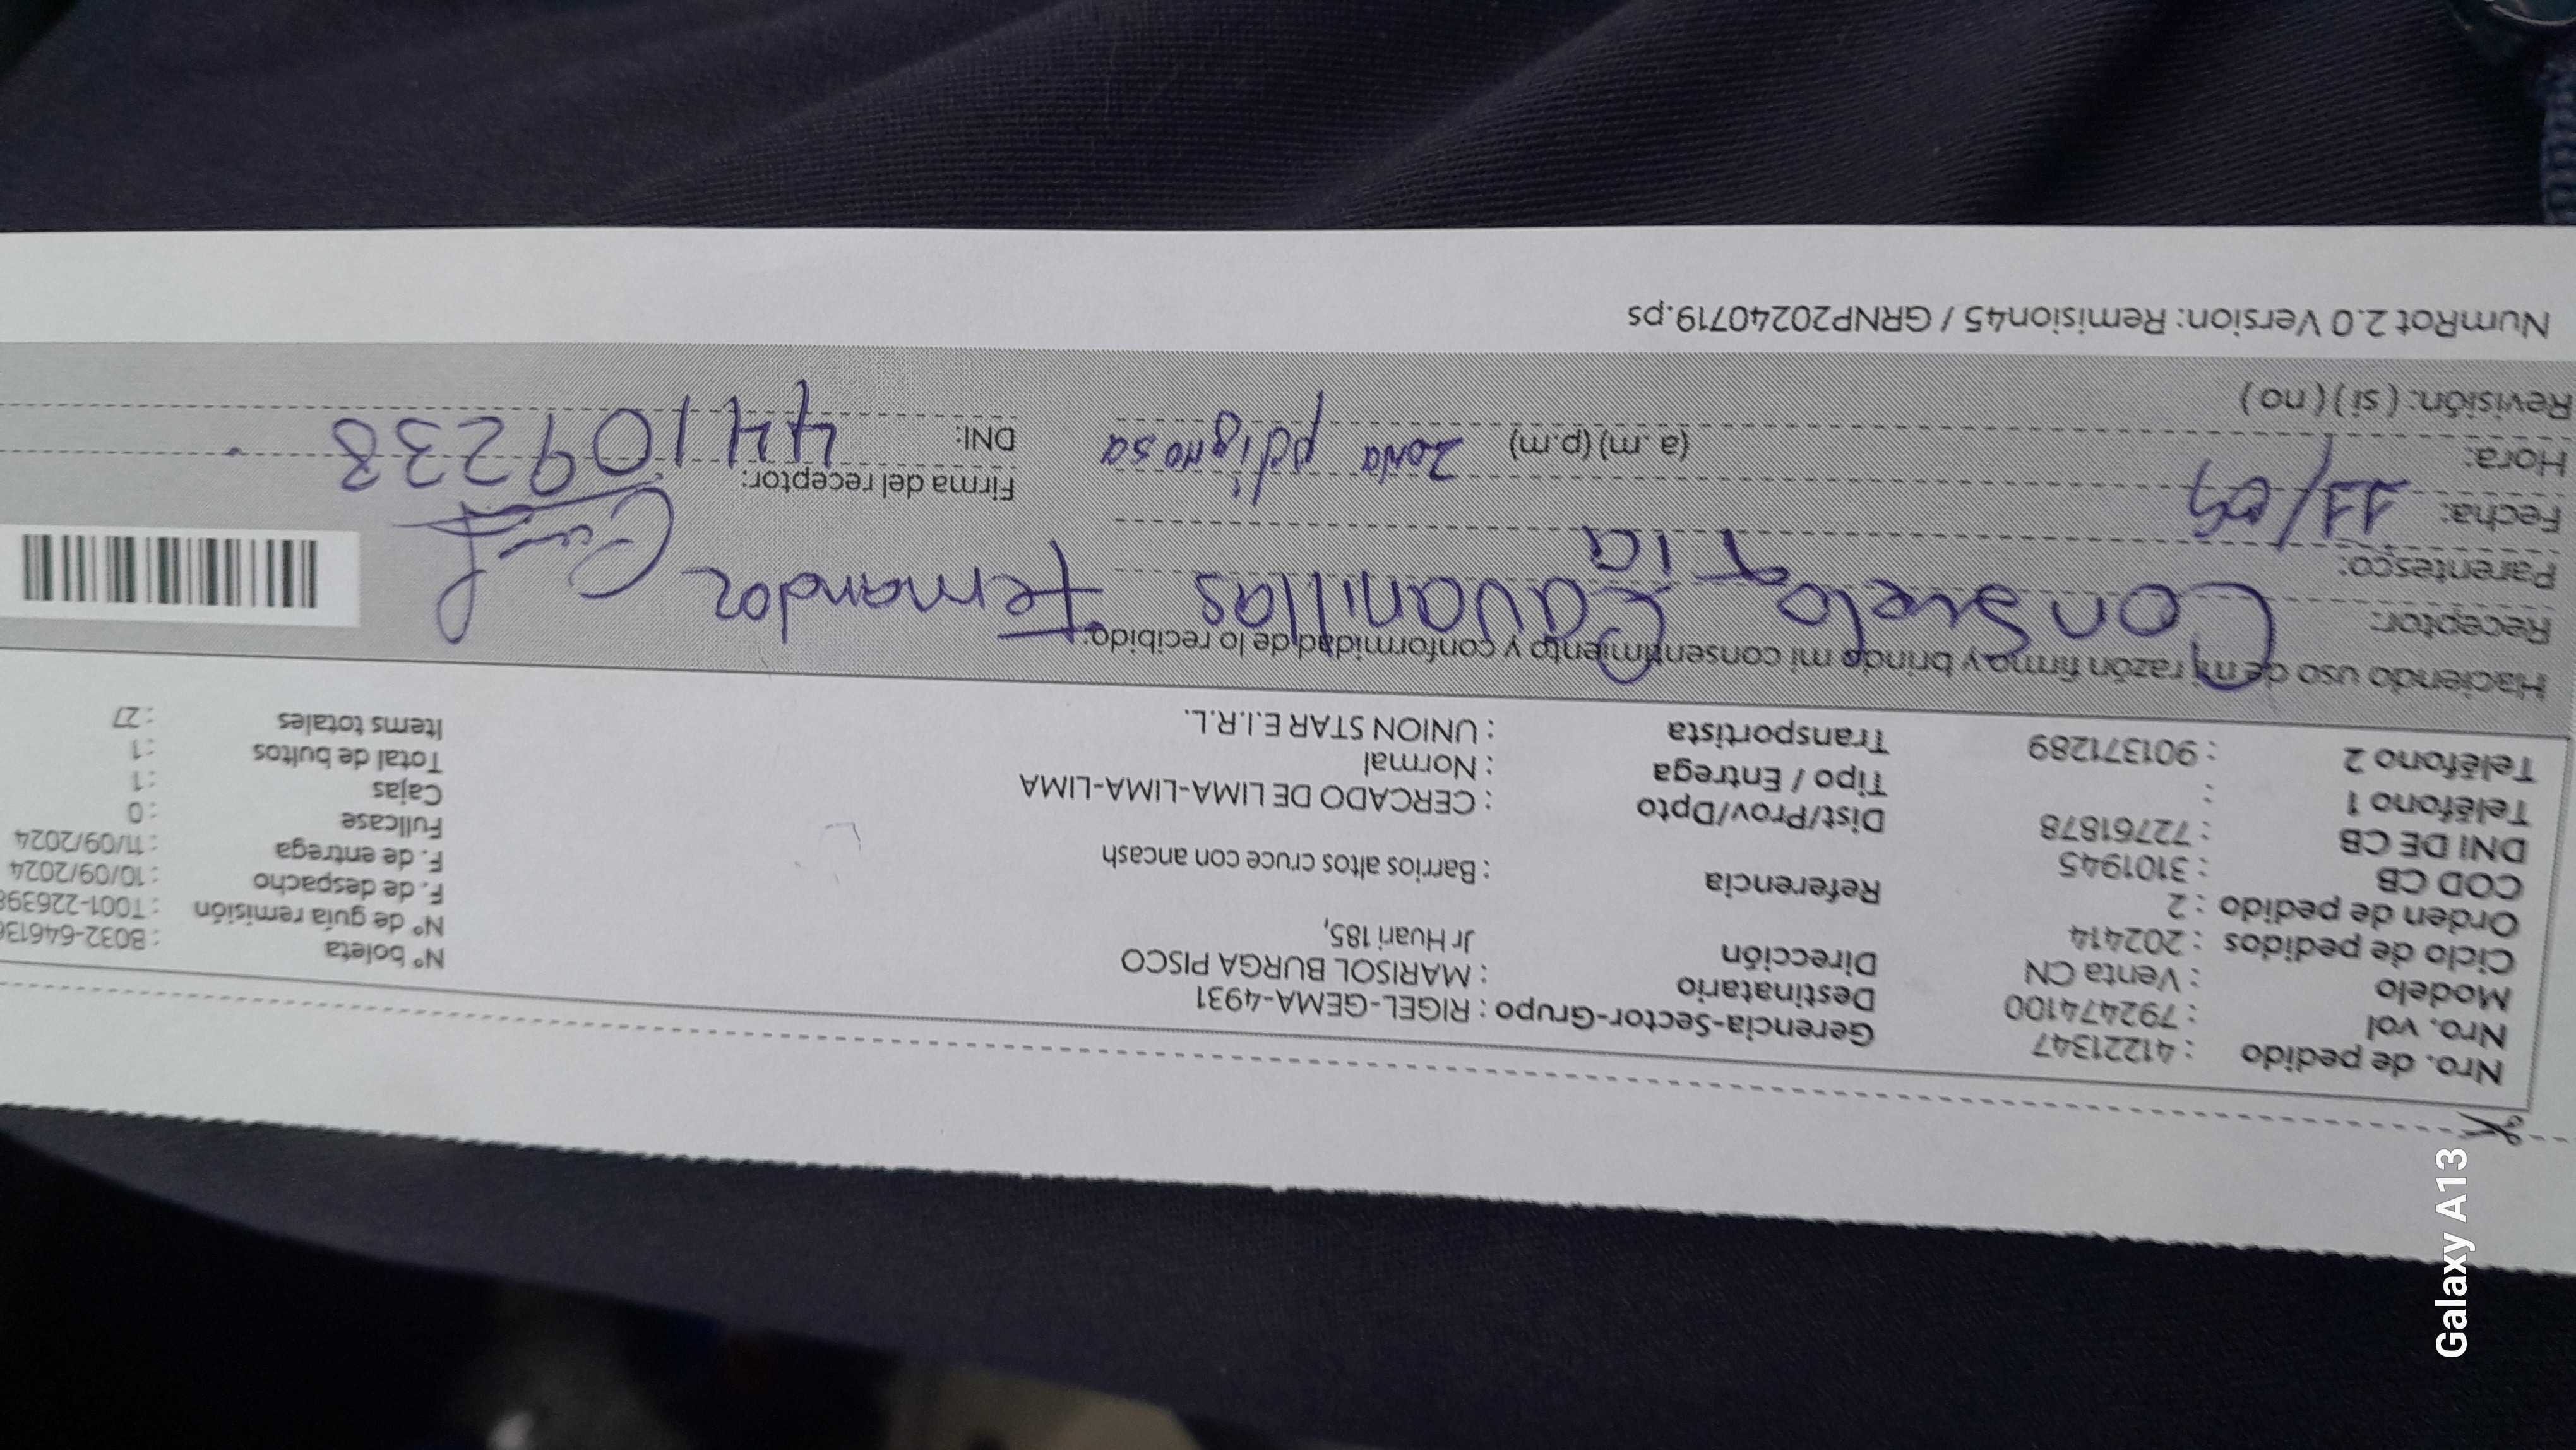 Nro. de pedido : 41221347
Nro. vol : 792474100
Modelo : Venta CN
Ciclo de pedidos : 202414
Orden de pedido : 2
COD CB : 3101945
DNI DE CB : 72761878
Teléfono 1 :
Teléfono 2 : 901371289
Gerencia-Sector-Grupo : RIGEL-GEMA-4931
Destinatario : MARISOL BURGA PISCO
Dirección Jr Huari 185,
Referencia : Barrios altos cruce con ancash
Dist/Prov/Dpto : CERCADO DE LIMA-LIMA-LIMA
Tipo / Entrega : Normal
Transportista : UNION STAR E.I.R.L.
N° boleta : B032-646136
N° de guía remisión : T001-226398
F. de despacho : 10/09/2024
F. de entrega : 11/09/2024
Fullcase : 0
Cajas : 1
Total de bultos : 1
Items totales : 27
Haciendo uso de mi razón firmo y brindo mi consentimiento y conformidad de lo recibido:
Receptor: Consuelo Cavanillas Fernandez
Parentesco: Tia
Fecha: 11/09
Firma del receptor:
Hora: (a.m) (p.m) zona peligrosa
DNI: 44109238
Revisión: ( si ) ( no )
NumRot 2.0 Version: Remision45 / GRNP20240719.ps
Galaxy A13